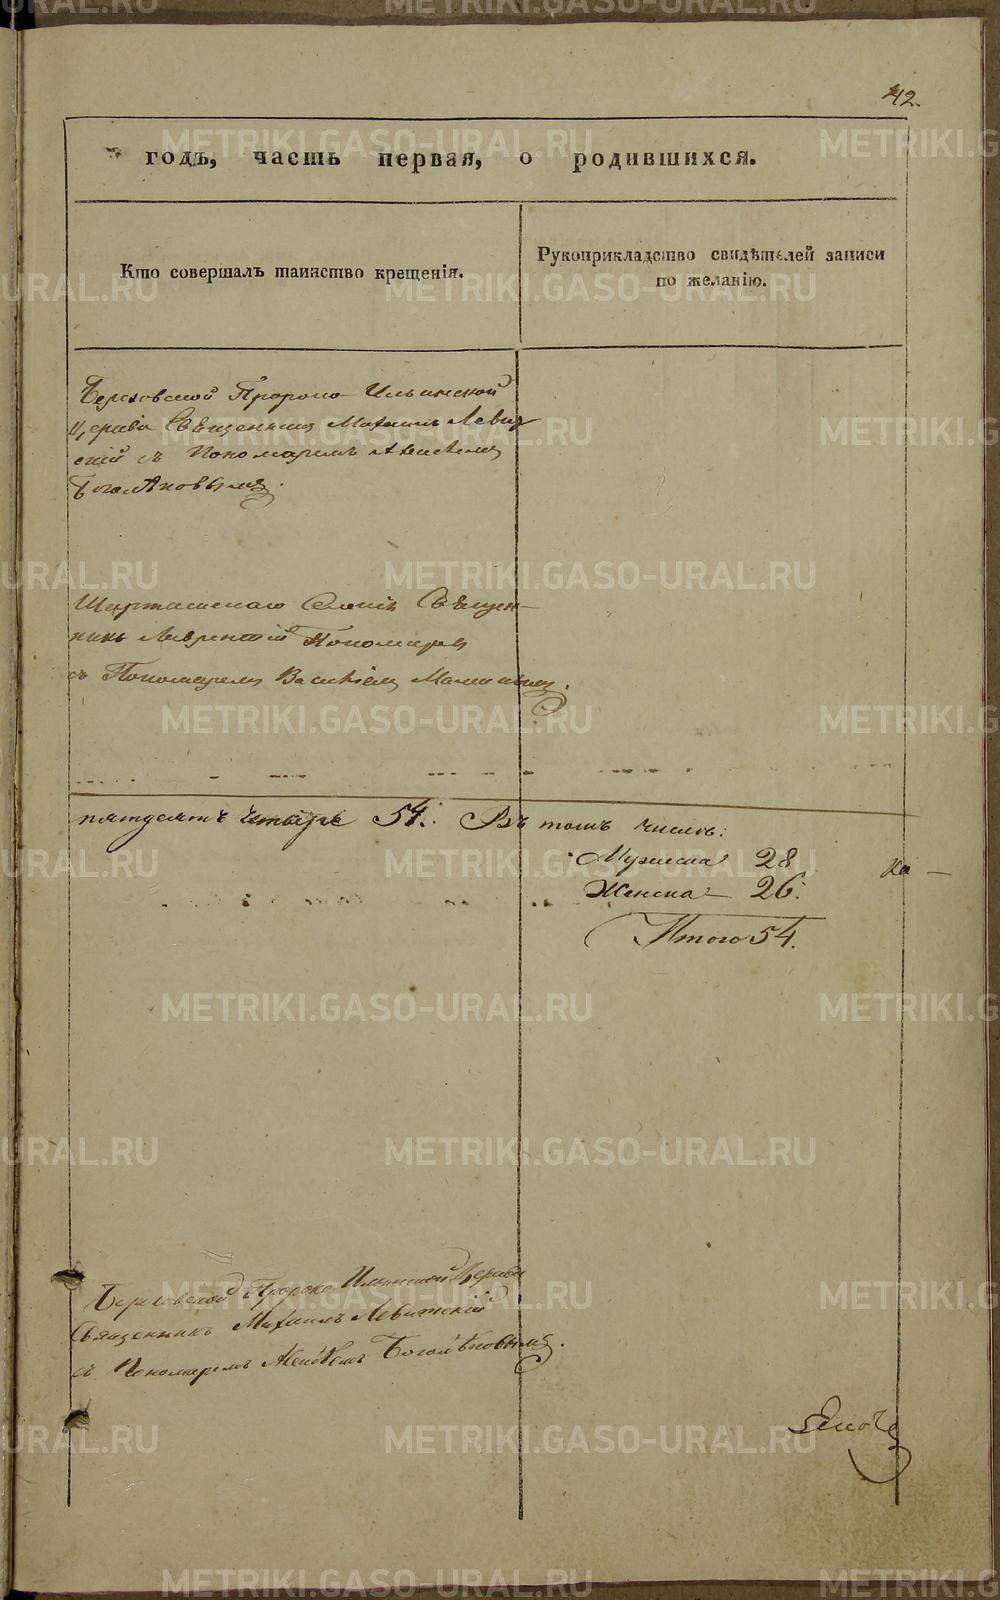 42.
годъ, часть первая, о родившихся.
Кто совершалъ таинство крещенія.
Рукоприкладство свидѣтелей записи
по желанію.
Пророко Ильинской
Церкви Священникъ Михаилъ Левиц
скій съ Пономаремъ
Шарташскаго Селенія Священ-
никъ Лаврентій Пономаревъ
съ Пономаремъ Василіемъ
пятдесятъ четыре 54. Въ томъ числѣ:
Мужеска 28
Женска – 26.
Итого 54.
ка –
Пророко Ильинской Церкви
Священникъ Михаилъ
съ Пономаремъ
METRIKI.GASO-URAL.RU